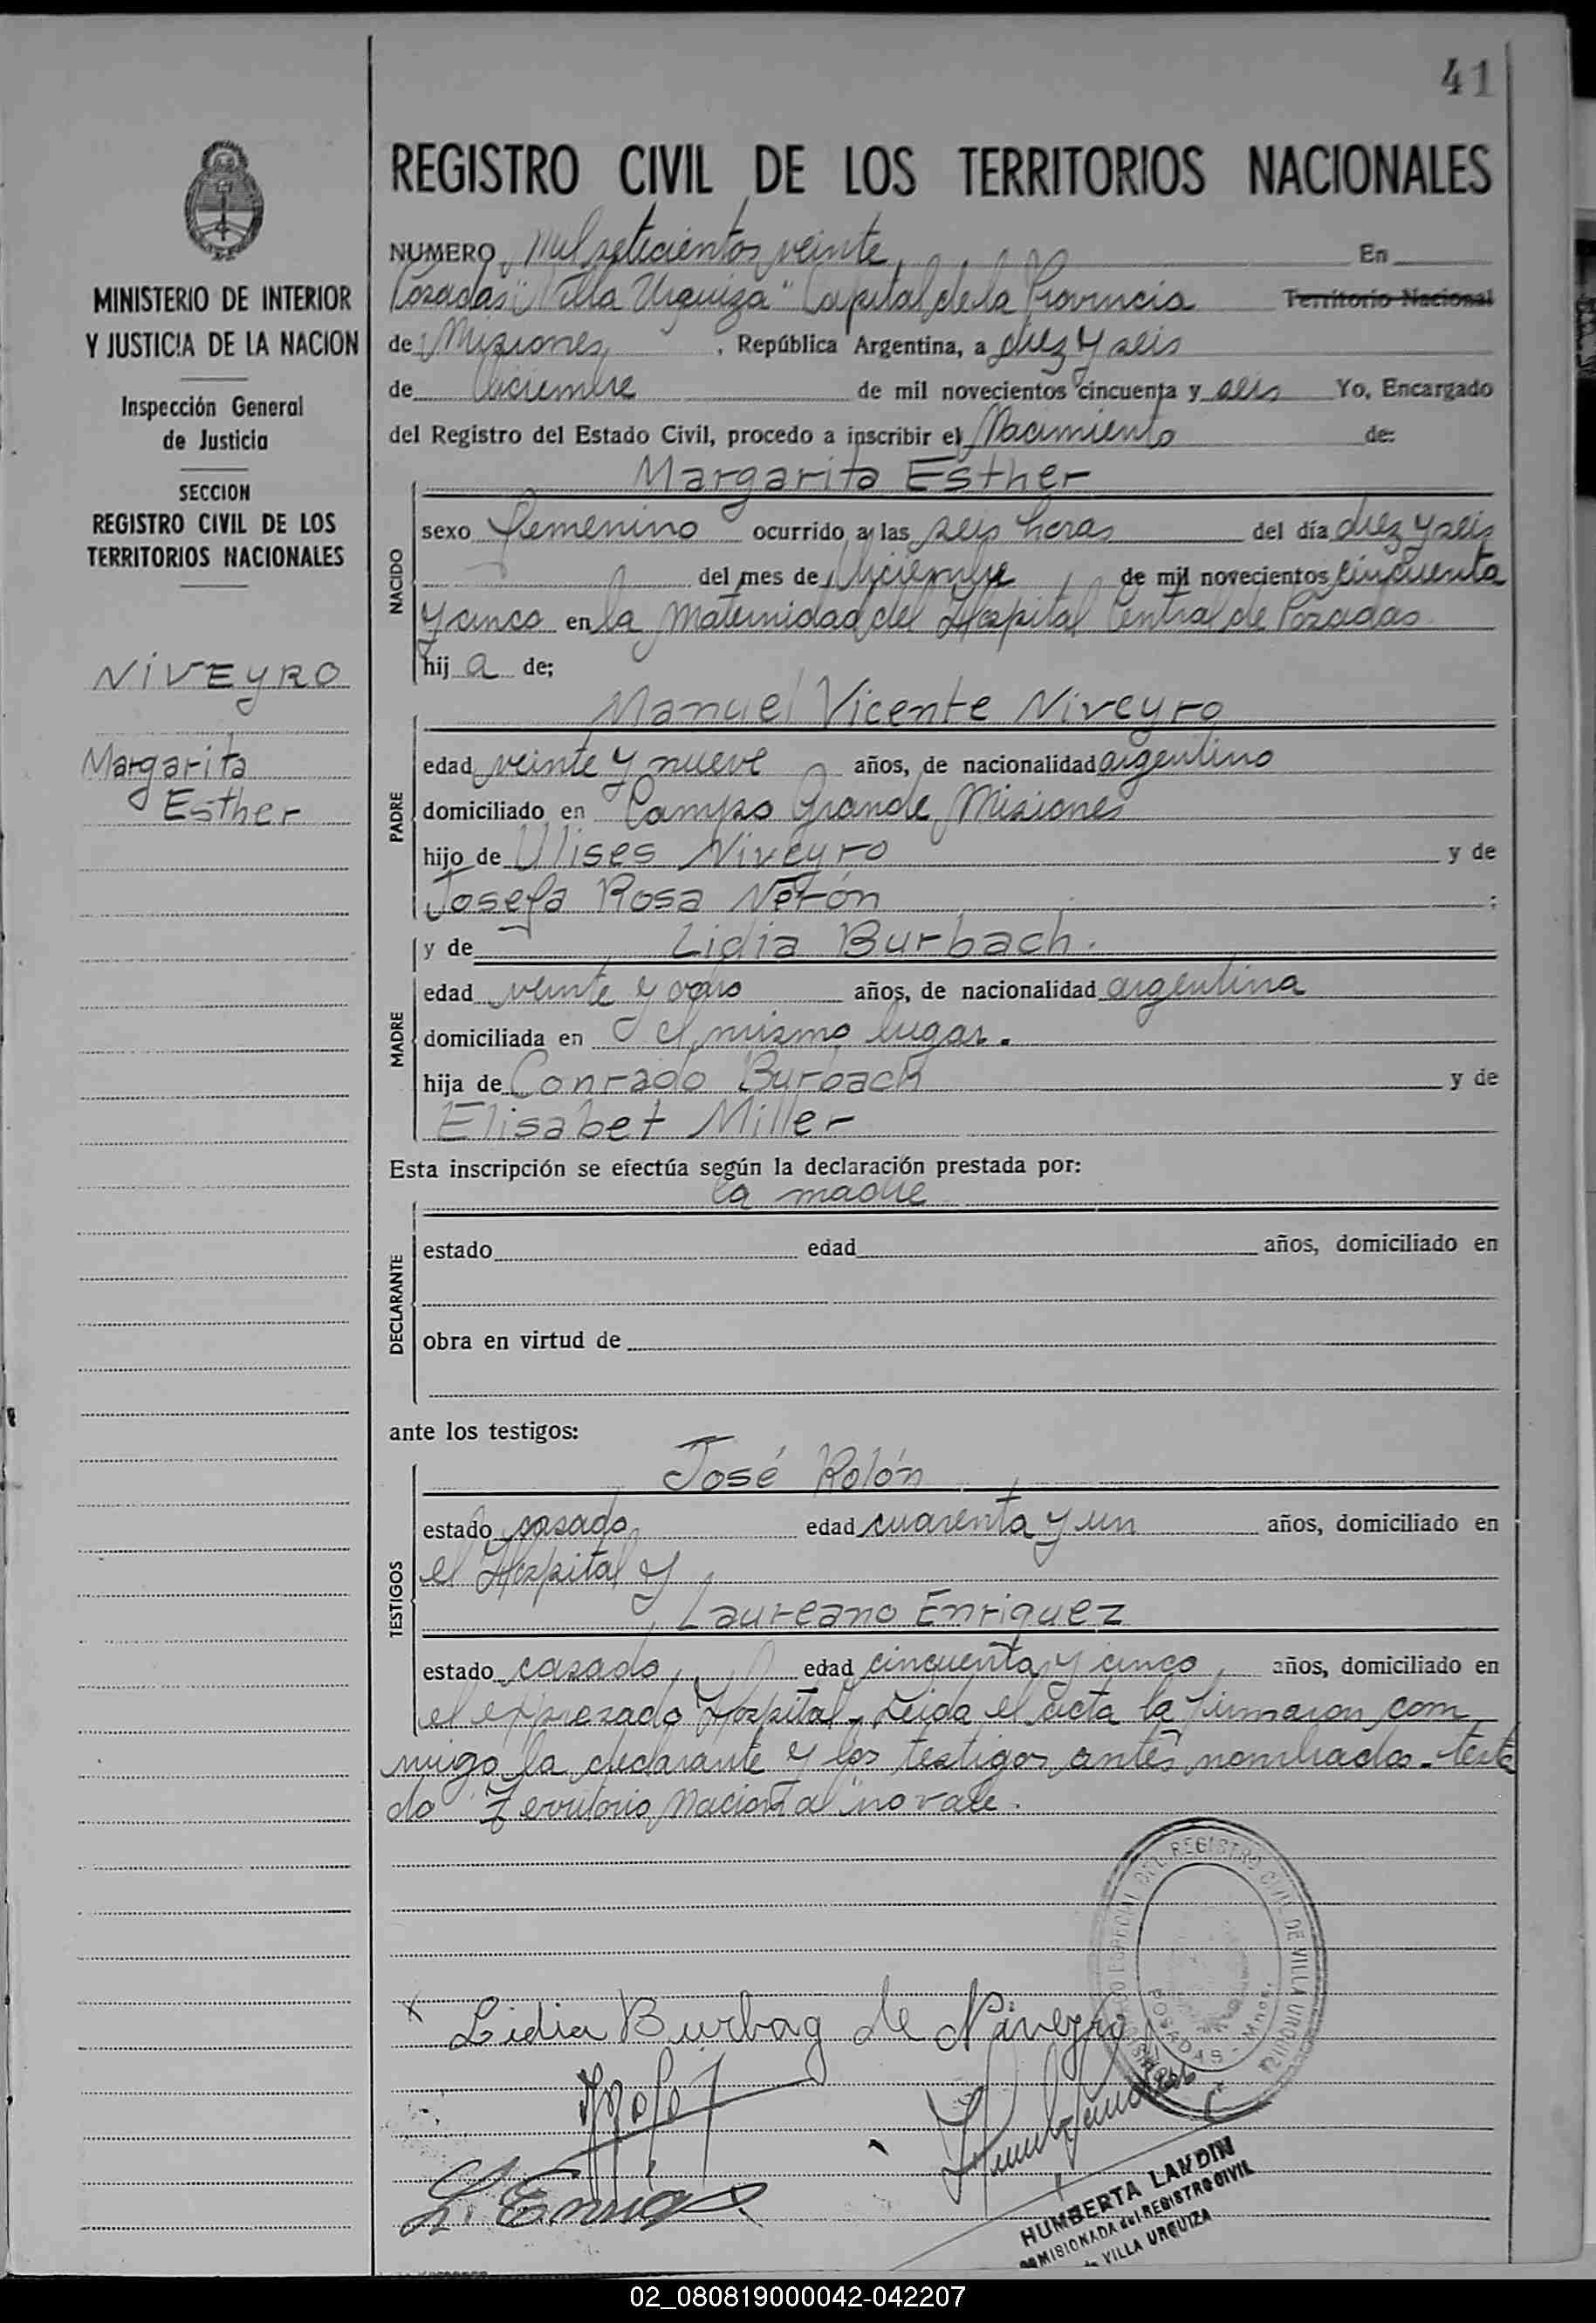 41
REGISTRO CIVIL DE LOS TERRITORIOS NACIONALES
MINISTERIO DE INTERIOR
Y JUSTICIA DE LA NACION
Inspección General
de Justicia
SECCION
REGISTRO CIVIL DE LOS
TERRITORIOS NACIONALES
NIVEYRO
Margarita
Esther
NUMERO Mil setecientos veinte En
Posadas "Villa Urquiza" Capital de la Provincia Territorio Nacional
de Misiones, República Argentina, a diez y seis
de diciembre de mil novecientos cincuenta y seis Yo, Encargado
del Registro del Estado Civil, procedo a inscribir el Nacimiento de:
Margarita Esther
NACIDO
sexo femenino ocurrido a las seis horas del día diez y seis
del mes de diciembre de mil novecientos cincuenta
y cinco en la Maternidad del Hospital Central de Posadas
hij a de;
Manuel Vicente Niveyro
PADRE
edad veinte y nueve años, de nacionalidad argentino
domiciliado en Campo Grande, Misiones
hijo de Ulises Niveyro y de
Josefa Rosa Nerón ;
y de Lidia Burbach.
MADRE
edad veinte y ocho años, de nacionalidad argentina
domiciliada en el mismo lugar.
hija de Conrado Burbach y de
Elisabet Miller
Esta inscripción se efectúa según la declaración prestada por:
la madre
DECLARANTE
estado edad años, domiciliado en
obra en virtud de
ante los testigos:
José Rolón
TESTIGOS
estado casado edad cuarenta y un años, domiciliado en
el Hospital y
Laureano Enriquez
estado casado, edad cincuenta y cinco, años, domiciliado en
el expresado Hospital. Leida el acta la firmaron con
migo la declarante y los testigos antes nombrados. testa
do "Territorio Nacional" no vale.
REGISTRO CIVIL DE VILLA URQUIZA
POSADAS - Mnes.
x Lidia Burbag de Niveyro
L. Enriq
HUMBERTA LANDIN
COMISIONADA del REGISTRO CIVIL
de VILLA URQUIZA
02_080819000042-042207